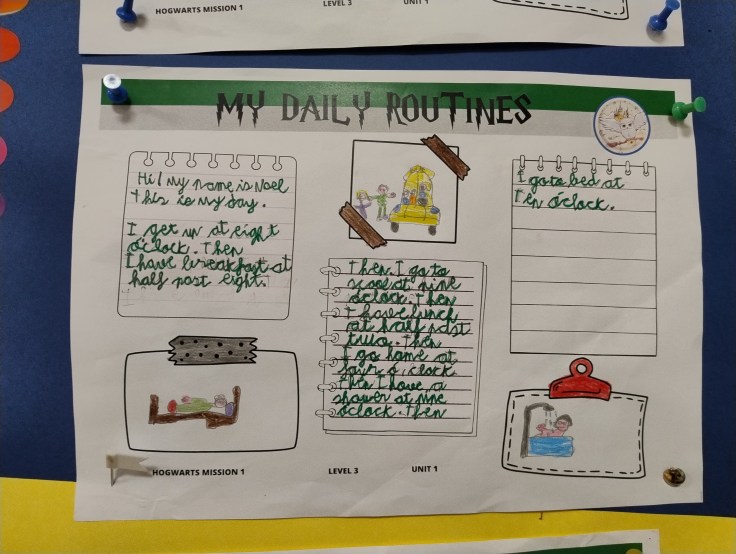 HOGWARTS MISSION 1
LEVEL 3
UNIT 1
MY DAILY ROUTINES
Hi! My name is Noel
this is my day.
I get up at eight
o'clock. Then
I have breakfast at
half past eight.
Then. I go to
scool at nine
o'clock. Then
I have lunch
at half past
two. Then
I go home at
o'clock
Then I have a
shower at nine
o'clock. Then
I go to bed at
Ten o'clock.
HOGWARTS MISSION 1
LEVEL 3
UNIT 1